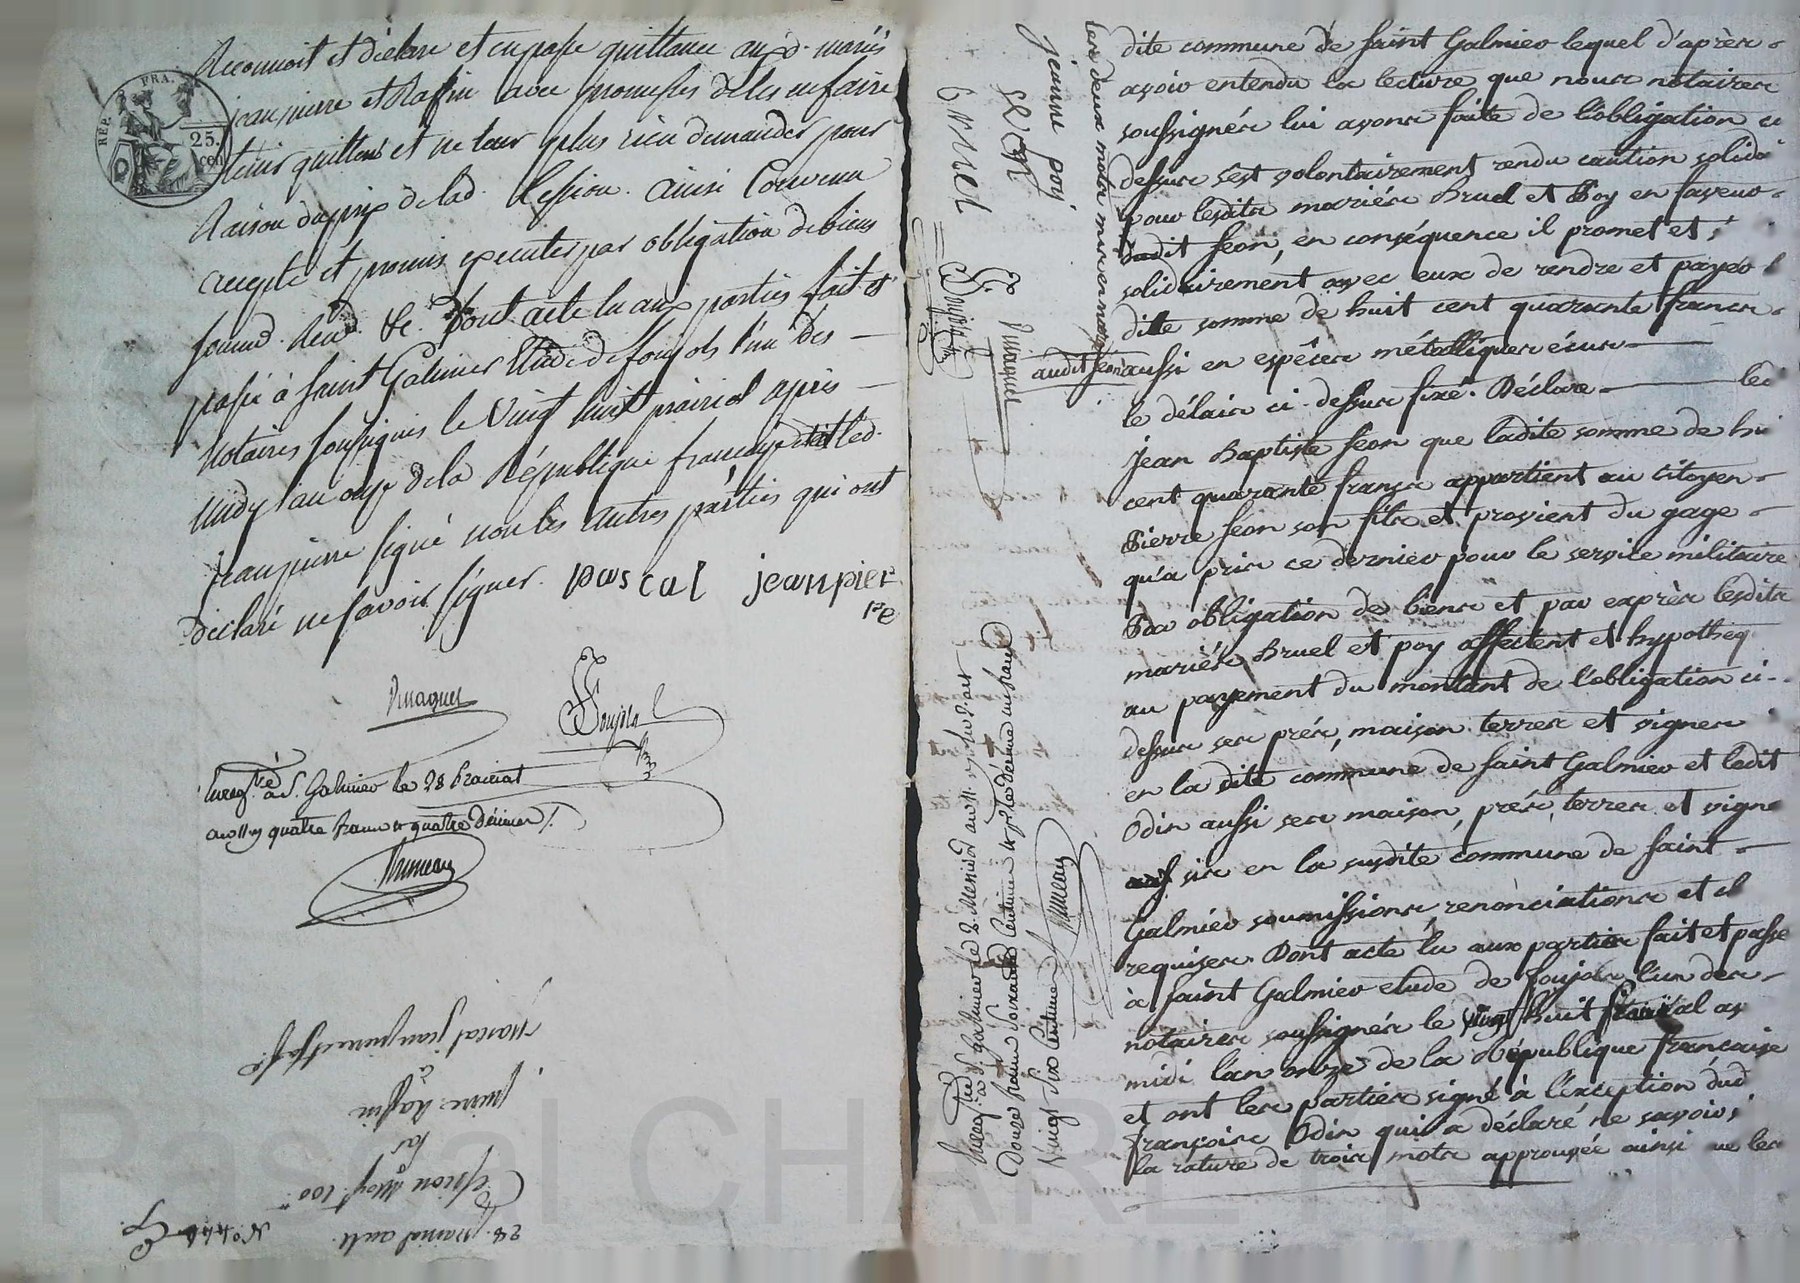 Reconnoit et déclare et en passe quittance auxd. mariés
jean pierre et Raffin avec promesses de les en faire
tenir quittes et ne leur plus rien demander pour
Raison du prix de lad. Cession. ainsi Convenu
accepté et promis executer par obligation de biens
soumd. Ren. &c. Dont acte lu aux parties fait et
passé à Saint Galmier Etude de foujols l'un des
Notaires soussignés le Vingt huit prairial après
midy l'an onze de la République française et led.
jean pierre signé non les autres parties qui ont
déclaré ne savoir signer. pascal jeanpier
re
REP. FRA.
25.
cen
Enreg.tré à S. Galmier le 28 Prairial
an 11 reçu quatre francs et quatre décimes
28. prairial an 11.
N.o
Cession moyt. 100
par
pierre Raffin
à
pascal jean pierre
dite commune de saint Galmier lequel d'après
avoir entendu la lecture que nous notaires
soussignés lui avons faite de l'obligation ci
dessus s'est volontairement rendu caution solidai
pour lesdits mariés Bruel et Poy en faveur
dudit feon, en conséquence il promet et
solidairement avec eux de rendre et payer l
dite somme de huit cent quarante francs
audit feon aussi en espèces métalliques écus
le délais ci-dessus fixé. Déclare led
jean Baptiste feon que ladite somme de hui
cent quarante francs appartient au Citoyen
Pierre feon son fils et provient du gage
qu'a pris ce dernier pour le service militaire
Par obligation de biens et par exprès lesdits
mariés Bruel et poy affectent et hypothèq
au payement du montant de l'obligation ci-
dessus ses prés, maison terres et vignes
en la dite commune de saint Galmier et ledit
Odin aussi ses maison, prés, terres et vigne
sis en la susdite commune de saint
Galmier soumissions, renonciations et cl
requises. Dont acte lu aux parties fait et passé
à saint Galmier etude de foujols l'un des
notaires soussignés le vingt huit prairial av
midi l'an onze de la République française
et ont les parties signé à l'exception dud
françois Odin qui a déclaré ne savoir
la rature de trois mots approuvée ainsi que les
les deux mots mis en marge
jeanne poy
feon
bruel
Enreg.tré à S. Galmier le 2. Messidor an 11
Douze francs Soixante Centimes
Vingt Six Centimes
Pascal CHAREYRON